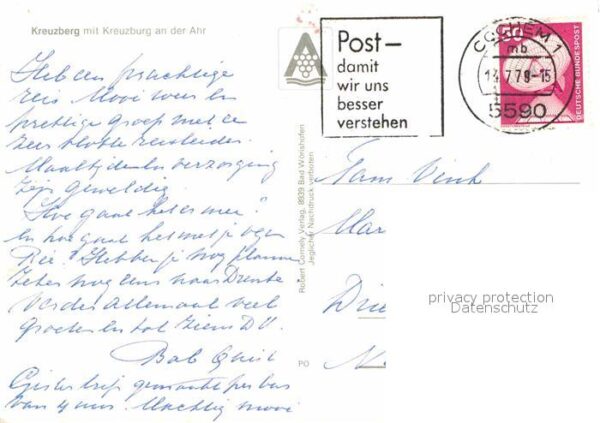 Kreuzberg mit Kreuzburg an der Ahr
Heb een prachtige
reis Mooi weer en
prettige groep met een
zeer vlotte reisleider.
Maaltijden en verzorging
zijn geweldig.
Hoe gaat het er mee?
En hoe gaat het met je ogen
Rie. Hebben je nog plannen
zeker nog eens naar Drente
Verder allemaal veel
groeten en tot ziens D.V.
Bab
Gister trip gemaakt per bus
van 4 uur. Machtig mooi
Robert Cornely Verlag, 8939 Bad Wörishofen
Jeglicher Nachdruck verboten
PO
Post–
damit
wir uns
besser
verstehen
COCHEM 1
mb
14.7.78-15
5590
50
DEUTSCHE BUNDESPOST
Fam Vink
Mar
Drie
N
privacy protection
Datenschutz